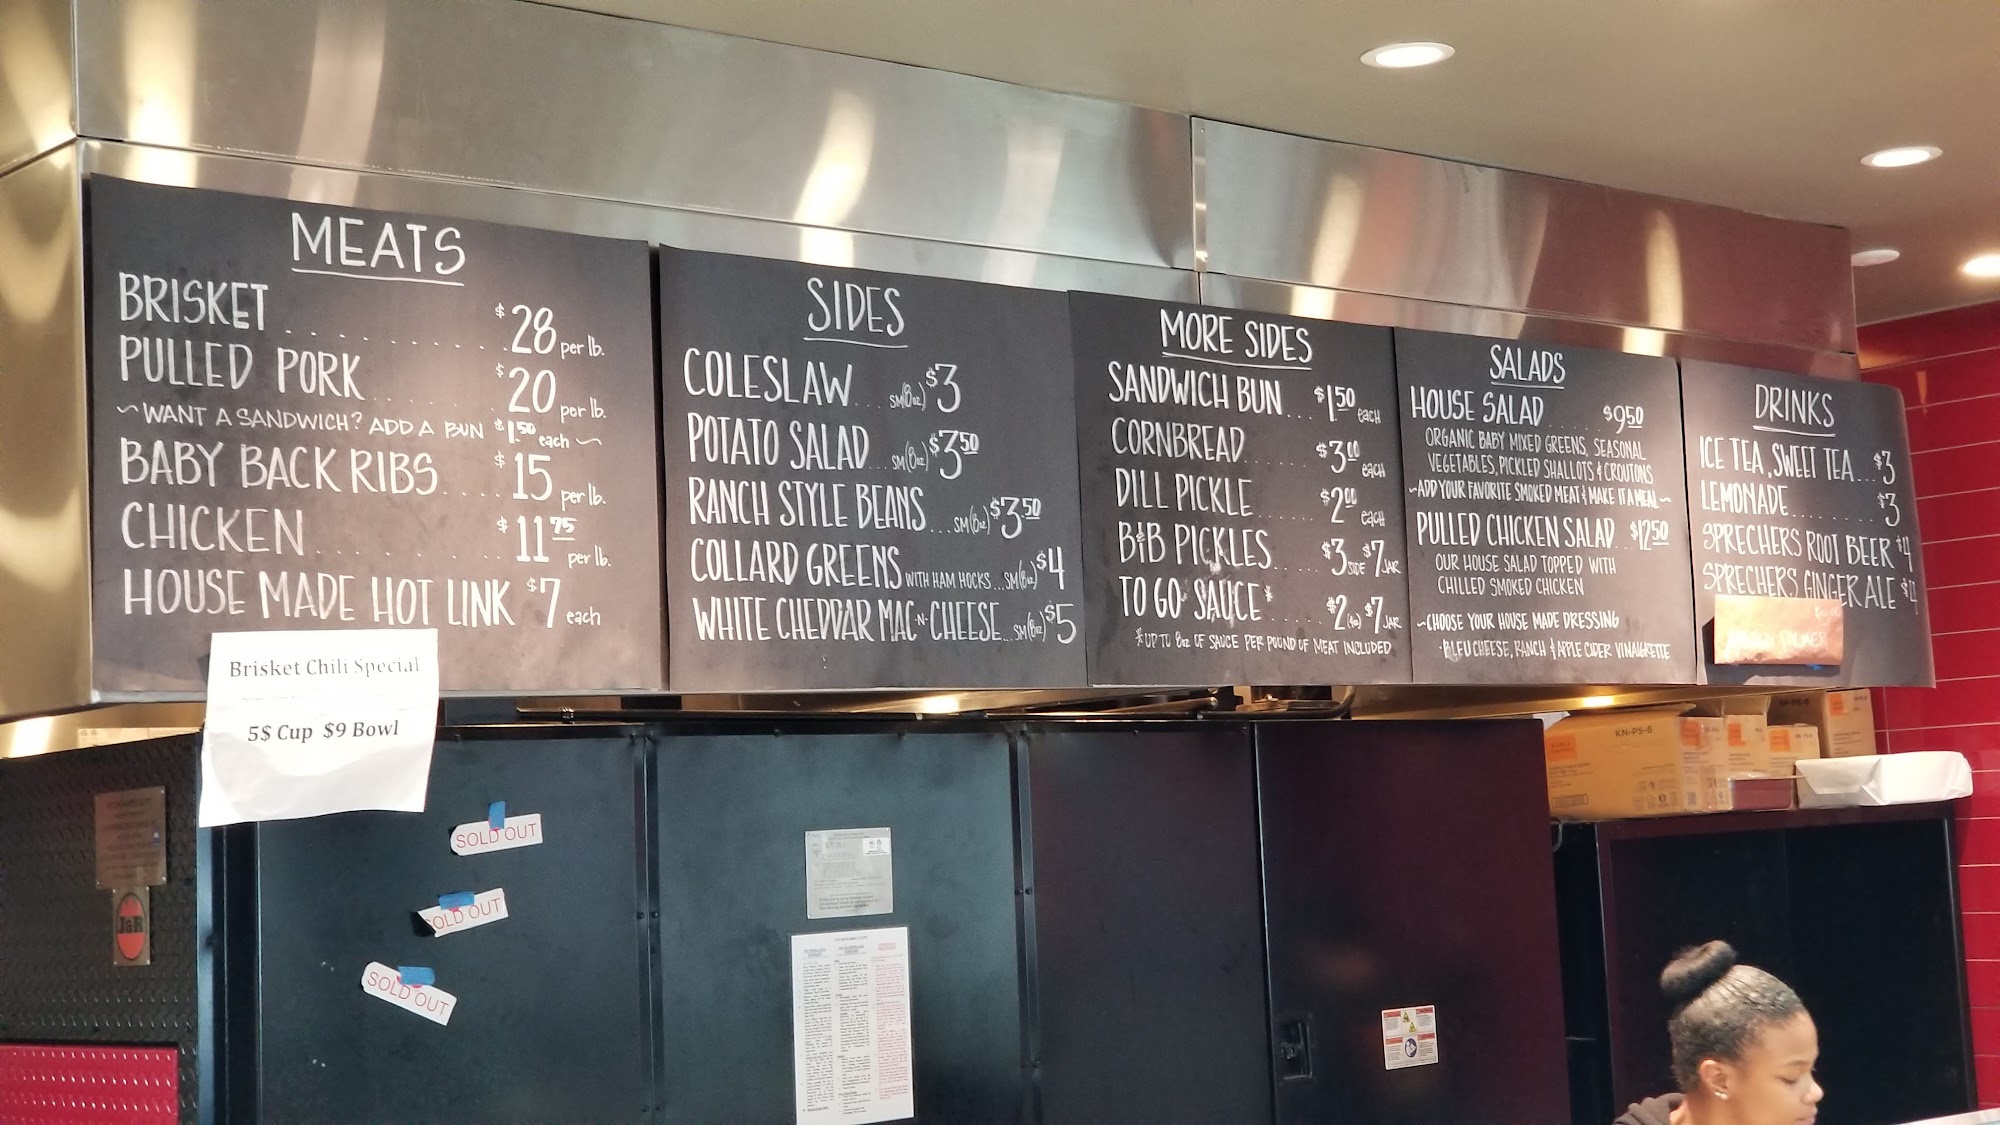 MEATS
BRISKET . . . . . . . . . . $28 per lb.
PULLED PORK . . . . . . $20 per lb.
~WANT A SANDWICH? ADD A BUN $1.50 each~
BABY BACK RIBS . . . . $15 per lb.
CHICKEN . . . . . . . . . . $11 75 per lb.
HOUSE MADE HOT LINK $7 each
Brisket Chili Special
5$ Cup $9 Bowl
SIDES
COLESLAW . . . SM(8oz) $3
POTATO SALAD . . SM(8oz) $3 50
RANCH STYLE BEANS . . . SM(8oz) $3 50
COLLARD GREENS WITH HAM HOCKS . . . SM(8oz) $4
WHITE CHEDDAR MAC-N-CHEESE . . . SM(8oz) $5
MORE SIDES
SANDWICH BUN . . . $1 50 each
CORNBREAD . . . . . . $3 00 each
DILL PICKLE . . . . . . $2 00 each
B&B PICKLES . . . . $3 SIDE $7 JAR
TO GO SAUCE* . . . . $2 (4oz) $7 JAR
*UP TO 8oz OF SAUCE PER POUND OF MEAT INCLUDED
SALADS
HOUSE SALAD . . . . . $9 50
ORGANIC BABY MIXED GREENS, SEASONAL
VEGETABLES, PICKLED SHALLOTS & CROUTONS
~ADD YOUR FAVORITE SMOKED MEAT & MAKE IT A MEAL~
PULLED CHICKEN SALAD . . $12 50
OUR HOUSE SALAD TOPPED WITH
CHILLED SMOKED CHICKEN
~CHOOSE YOUR HOUSE MADE DRESSING
·BLEU CHEESE, RANCH & APPLE CIDER VINAIGRETTE
DRINKS
ICE TEA, SWEET TEA . . . $3
LEMONADE . . . . . . . . $3
SPRECHERS ROOT BEER $4
SPRECHERS GINGER ALE $4
KN-PS-6
SOLD OUT
SOLD OUT
SOLD OUT
J&R